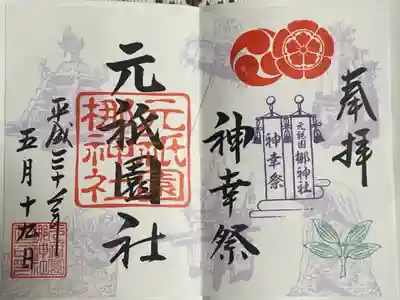 奉拝
元祇園梛神社
神幸祭
神幸祭
元祇園社
元祇園
梛神社
平成
五月十九日